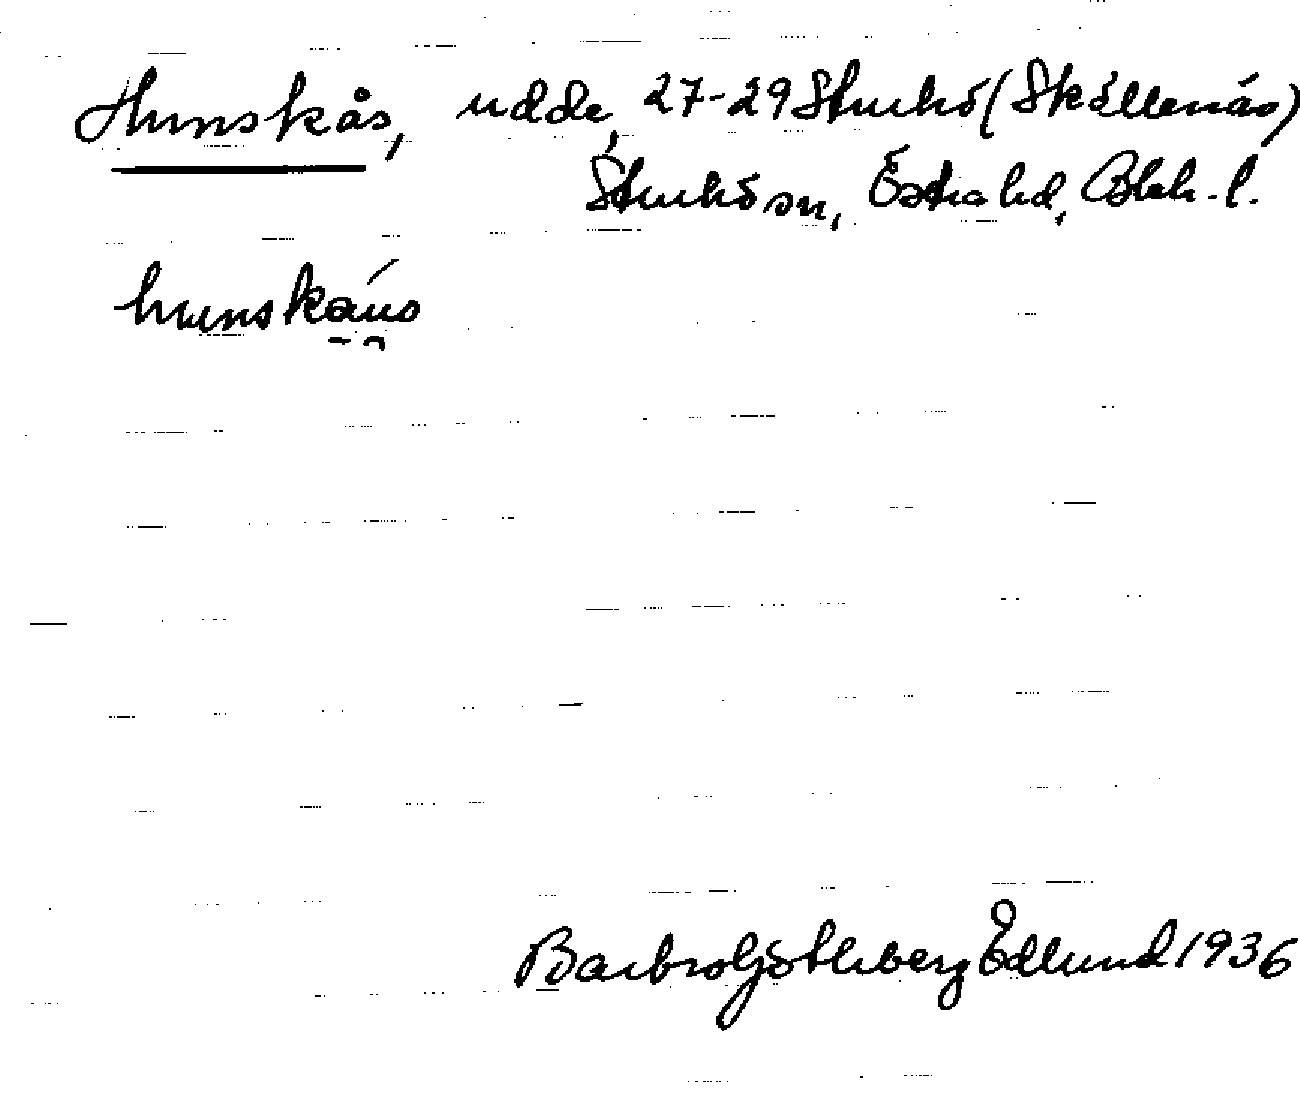 Hunskås, udde, 27-29 Sturkö (Skällenäs)
Sturkö sn, Östra hd, Blek. l.
hunskáus
Barbro Götleberg Edlund 1936